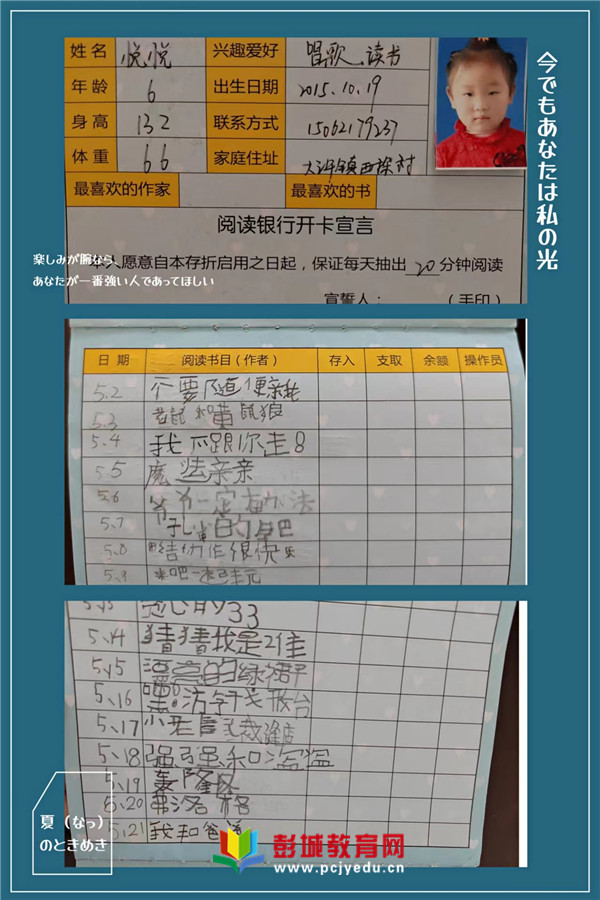 今でもあなたは私の光
姓名 悦悦 兴趣爱好 唱歌、读书
年龄 6 出生日期 2015.10.19
身高 132 联系方式 15062179237
体重 66 家庭住址 大许镇西探村
最喜欢的作家 最喜欢的书
阅读银行开卡宣言
楽しみが腕なら、
本人愿意自本存折启用之日起，保证每天抽出 20 分钟阅读
あなたが一番強い人であってほしい
宣誓人： （手印）
日期 阅读书目（作者） 存入 支取 余额 操作员
5.2 不要随便亲我
5.3 老鼠和黄鼠狼
5.4 我不跟你走
5.5 魔法亲亲
5.6 爷爷一定有办法
5.7
5.8
5.9
5.14 猜猜我是谁
5.15 漂亮的绿裙子
5.16
5.17 小老鼠裁缝店
5.18 强强和
5.19
5.20 弗洛格
5.21 我和爸爸
夏（なっ）
のときめき
彭城教育网
www.pcjyedu.cn